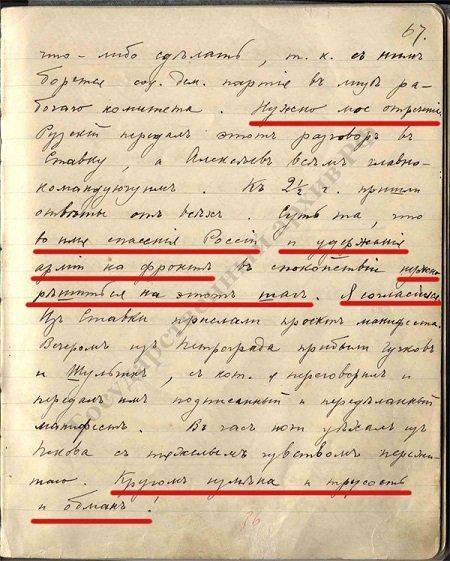 67.
что-либо сдѣлать, т. к. съ нимъ
борется соц. дем. партія въ лицѣ ра-
бочаго комитета. Нужно мое отреченіе.
Рузскій передалъ этотъ разговоръ въ
Ставку, а Алексѣевъ всѣмъ главно-
командующимъ. Къ 2½ ч. пришли
отвѣты отъ всѣхъ. Суть та, что
во имя спасенія Россіи и удержанія
арміи на фронтѣ въ спокойствіи нужно
рѣшиться на этотъ шагъ. Я согласился.
Изъ Ставки прислали проектъ манифеста.
Вечеромъ изъ Петрограда прибыли Гучковъ
и Шульгинъ, съ кот. я переговорилъ и
передалъ имъ подписанный и передѣланный
манифестъ. Въ часъ ночи уѣхалъ изъ
Пскова съ тяжелымъ чувствомъ пережи-
таго. Кругомъ измѣна и трусость
и обманъ!
Государственный архив РФ